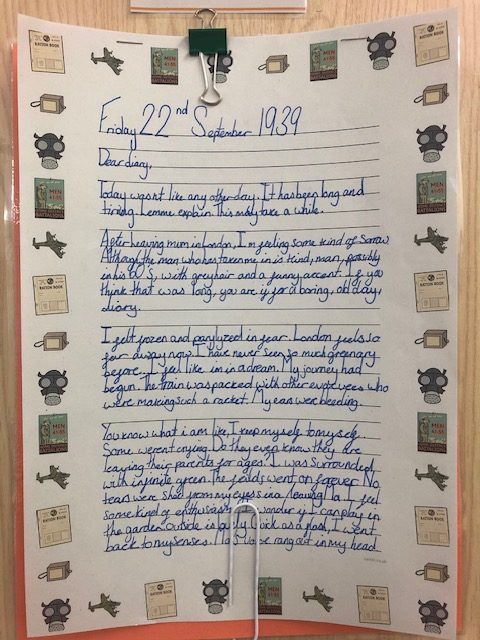 Friday 22nd September 1939
Dear diary,
Today wasnt like any other day. It has been long and
tiring. Lemme explain. This may take a while.
After leaving mum in London, I'm feeling some kind of sorrow.
Althogh the man who has taken me in is kind, man, possibly
in his 60's, with grey hair and a funny accent. If you
think that was long, you are if for a boring, old day,
diary.
I felt frozen and paralyzed in fear. London feels so
far away now. I have never seen so much greenary
before. I feel like im in a dream. My journey had
begun. The train was packed with other evacuees who
were making such a racket. My ears were bleeding.
You know what i am like, I keep myself to myself.
Some werent crying. Do they even know they are
leaving their parents for ages? I was surrounded
with infinite green. The feilds went on forever. No
tears were shed from my eyes since leaving Ma. I feel
some kind of enthusiasm. I wonder if I can play in
the garden outside is a Quick as a flash, I went
back to my senses. Ma's voice rang out in my head
RATION BOOK
MEN
41-55
BATTALIONS